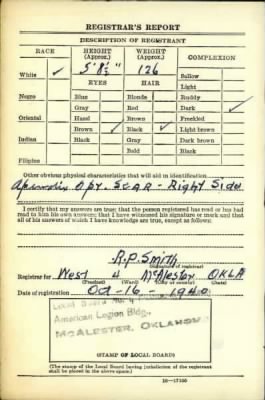 REGISTRAR'S REPORT
DESCRIPTION OF REGISTRANT
RACE
HEIGHT (Approx.)
WEIGHT (Approx.)
COMPLEXION
5' 8½"
126
White ✓
Sallow
EYES
HAIR
Light
Negro
Blue
Blonde
Ruddy
Gray
Red
Dark ✓
Oriental
Hazel
Brown
Freckled
Brown ✓
Black ✓
Light brown
Indian
Black
Gray
Dark brown
Bald
Black
Filipino
Other obvious physical characteristics that will aid in identification
Opr. Scar - Right Side
I certify that my answers are true; that the person registered has read or has had
read to him his own answers; that I have witnessed his signature or mark and that
all of his answers of which I have knowledge are true, except as follows:
R.P. Smith
(Signature of registrar)
Registrar for West 4 McAlester OKLA
(Precinct) (Ward) (City or county) (State)
Date of registration Oct-16-1940
Local Board No. 4
American Legion Bldg.,
MCALESTER, OKLAHOMA
STAMP OF LOCAL BOARD
(The stamp of the Local Board having jurisdiction of the registrant
shall be placed in the above space.)